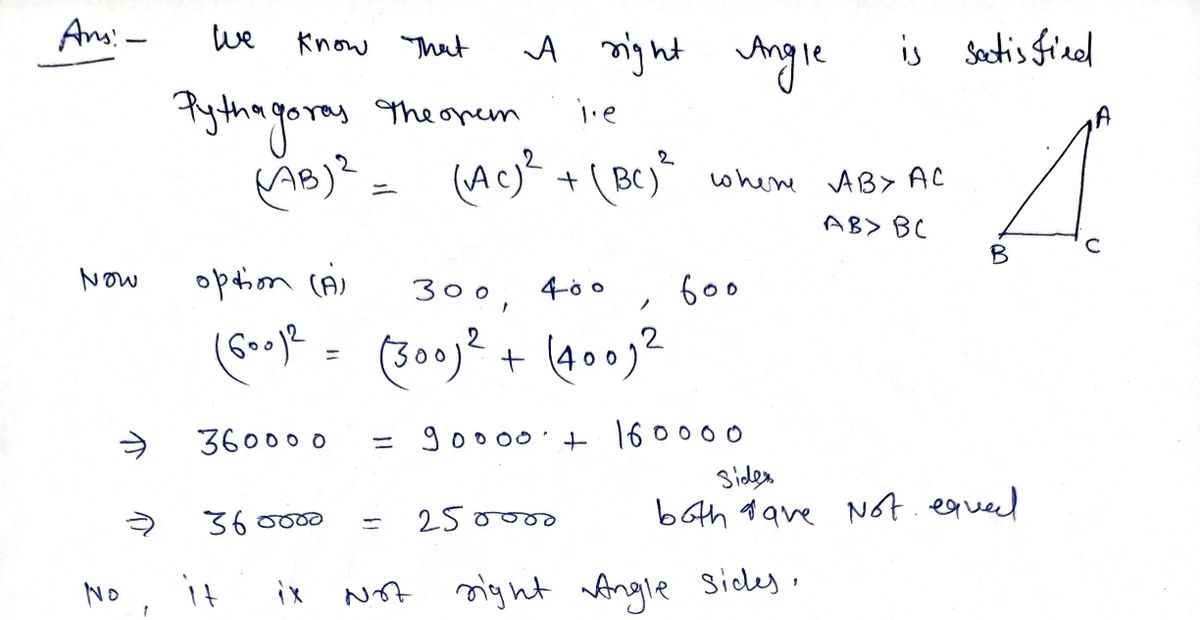 Ans:- We know That A right Angle is satisfied
Pythagoras Theorem i.e
(AB)² = (AC)² + (BC)² where AB> AC
AB> BC
A
B
C
Now option (A) 300, 400, 600
(600)² = (300)² + (400)²
⇒ 360000 = 90000 + 160000
⇒ 360000 = 250000 both sides are Not equal
No, it is Not right Angle sides.